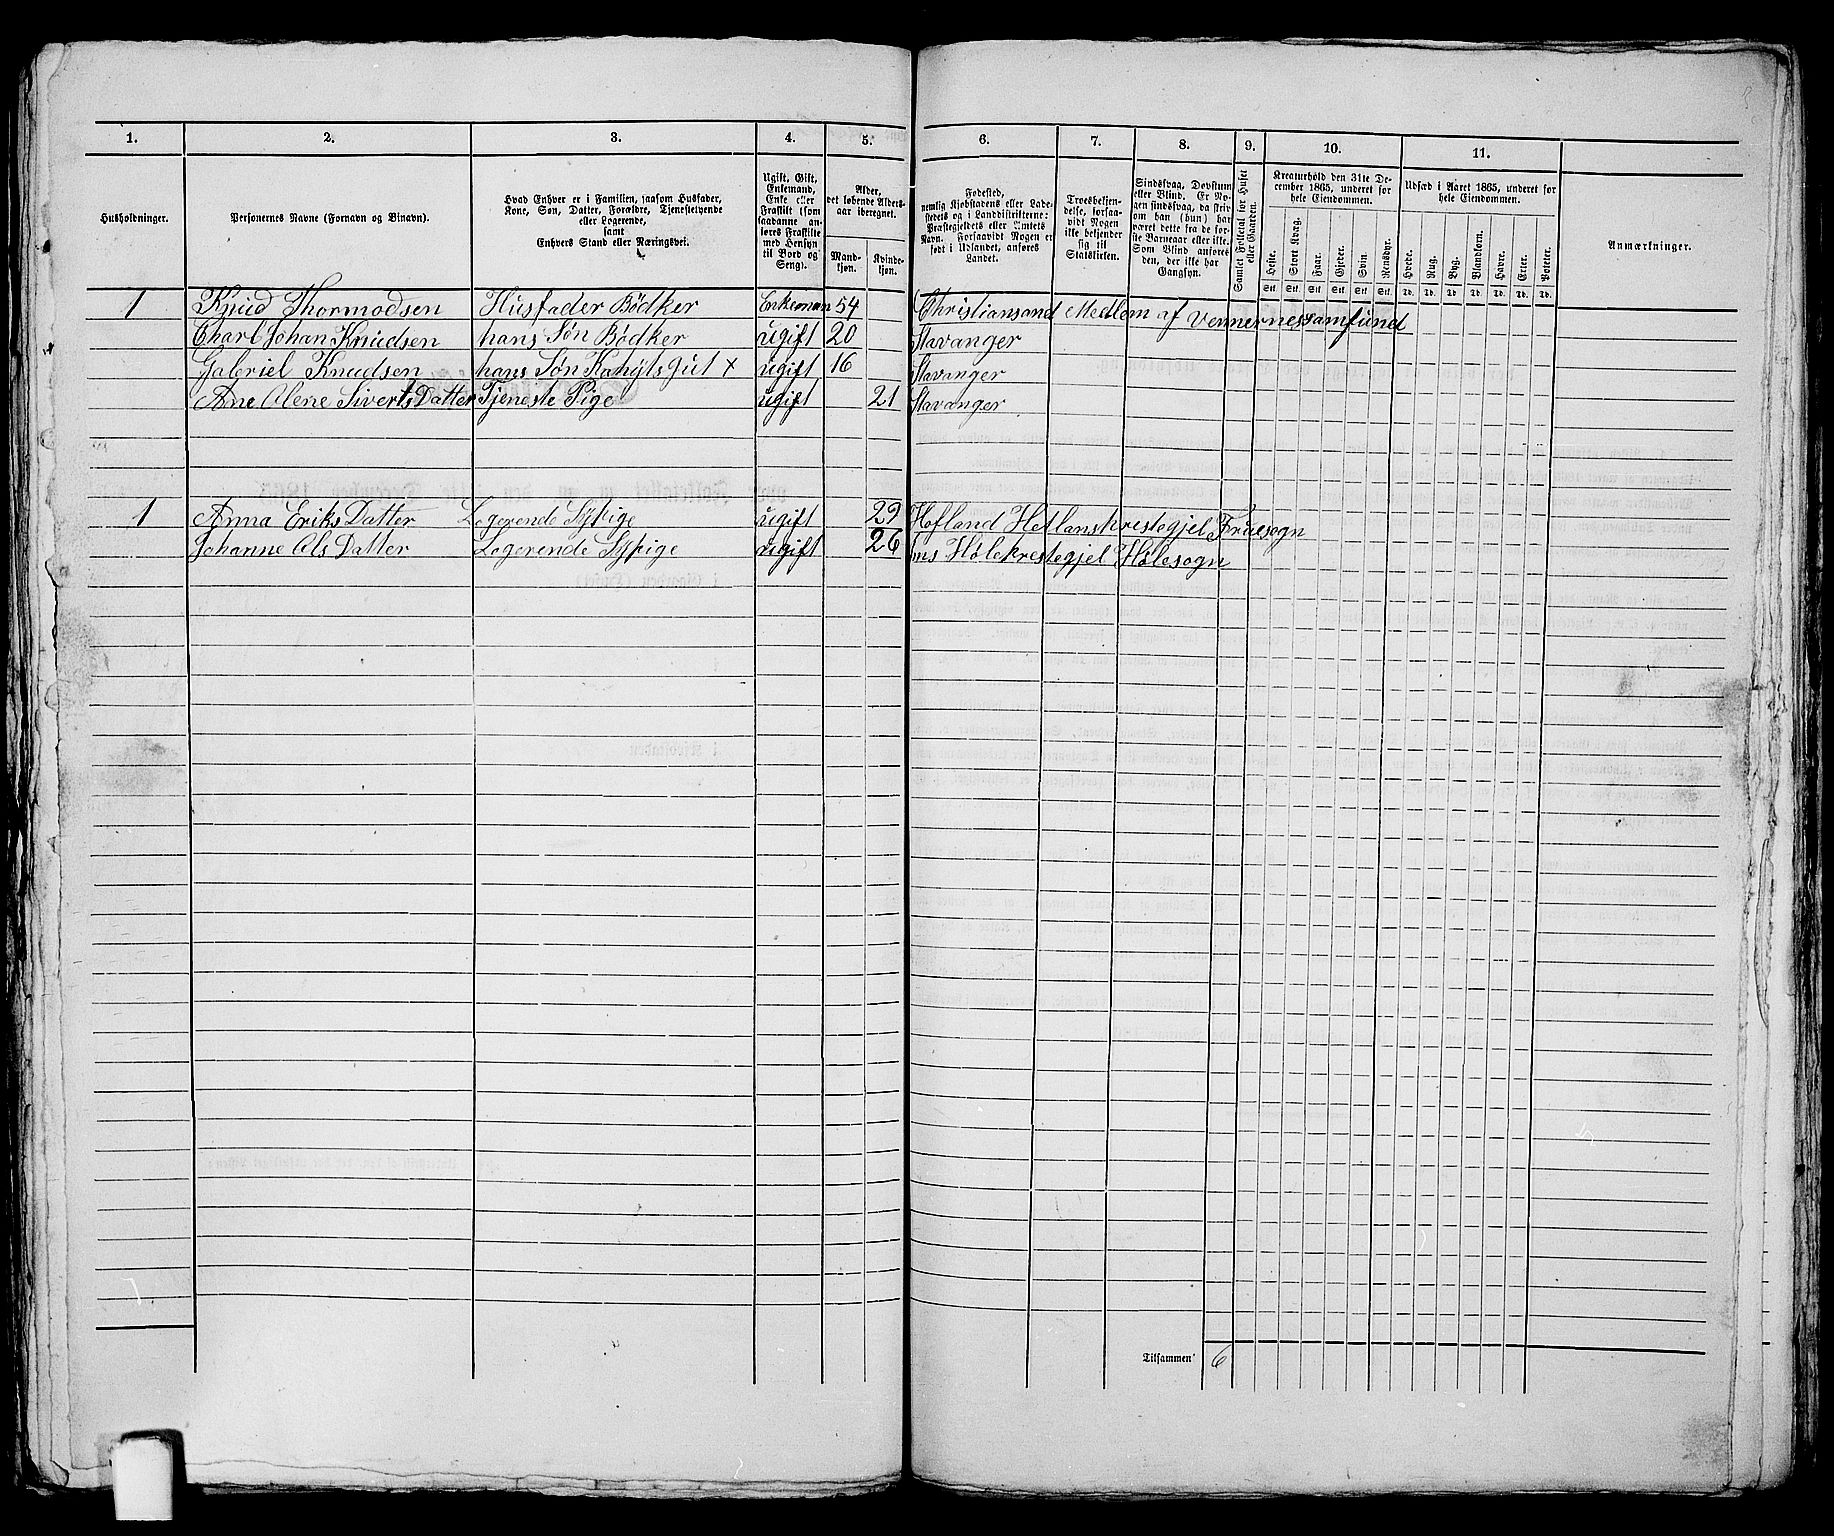 1. 2. 3. 4. 5. 6. 7. 8. 9. 10. 11.
Husholdninger.
Personernes Navne (Fornavn og Binavn).
Hvad Enhver er i Familien, saasom Husfader,
Kone, Søn, Datter, Forældre, Tjenestetyende
eller Logerende,
samt
Enhvers Stand eller Næringsvei.
Ugift, Gift,
Enkemand,
Enke eller
Fraskilt (som
saadanne an-
føres Fraskilte
med Hensyn
til Bord og
Seng).
Alder,
det løbende Alders-
aar iberegnet.
Mand-
kjøn.
Kvinde-
kjøn.
Fødested,
nemlig Kjøbstadens eller Lade-
stedets og i Landdistrikterne:
Præstegjeldets eller Amtets
Navn. Forsaavidt Nogen er
født i Udlandet, anføres
Landet.
Troesbekjen-
delse, forsaa-
vidt Nogen
ikke bekjender
sig til
Statskirken.
Sindssvag, Døvstum
eller Blind. Er No-
gen sindssvag, da skriv
om han (hun) har
været dette fra de før-
ste Barneaar eller ikke.
Som Blind anføres
den, der ikke har
Gangsyn.
Samlet Folketal for Huset
eller Gaarden.
Kreaturhold den 31te De-
cember 1865, underet for
hele Eiendommen.
Heste. Stort Kvæg. Faar. Gjeder. Svin. Rensdyr.
Stk. Stk. Stk. Stk. Stk. Stk.
Udsæd i Aaret 1865, underet for
hele Eiendommen.
Hvede. Rug. Byg. Blandkorn. Havre. Erter. Poteter.
Td. Td. Td. Td. Td. Td. Td.
Anmærkninger.
1 Knud Thormodsen Husfader Bödker Enkeman 54 Christiansand Medlem af Vennernessamfund
Charl Johan Knudsen hans Søn Bødker ugift 20 Stavanger
Gabriel Knudsen hans Søn ugift 16 Stavanger
Ane Olene Siverts Datter Tjeneste Pige ugift 21 Stavanger
1 Anna Eriks Datter Logerende Sypige ugift 29
Johanne Ols Datter Logerende Sypige ugift 26 Hølesogn
Tilsammen 6